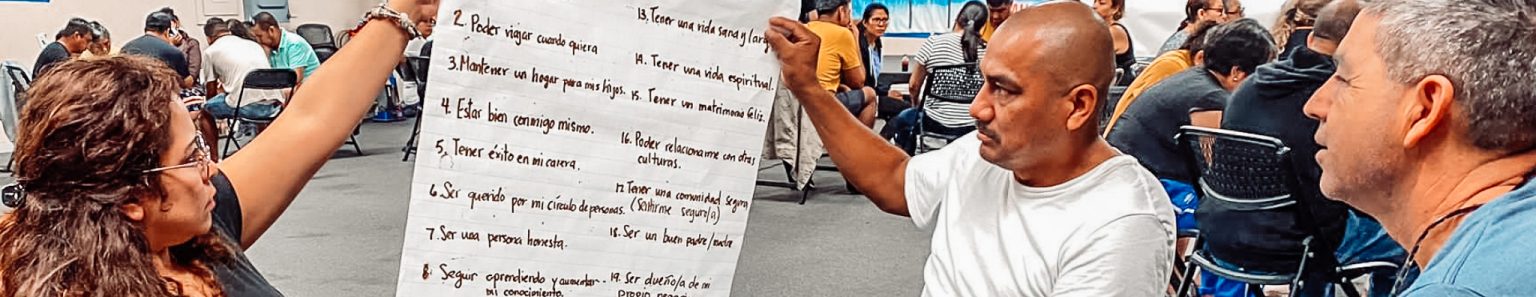 2. Poder viajar cuando quiera
3. Mantener un hogar para mis hijos.
4. Estar bien conmigo mismo.
5. Tener éxito en mi carera.
6. Ser querido por mi círculo de personas.
7. Ser una persona honesta.
8. Seguir aprendiendo y aumentar
mi conocimiento.
13. Tener una vida sana y larg
14. Tener una vida espiritual.
15. Tener un matrimonio feliz.
16. Poder relacionarme con otras
culturas.
17. Tener una comunidad segura
(Sentirme seguro/a)
18. Ser un buen padre/madre
19. Ser dueño/a de mi
propio